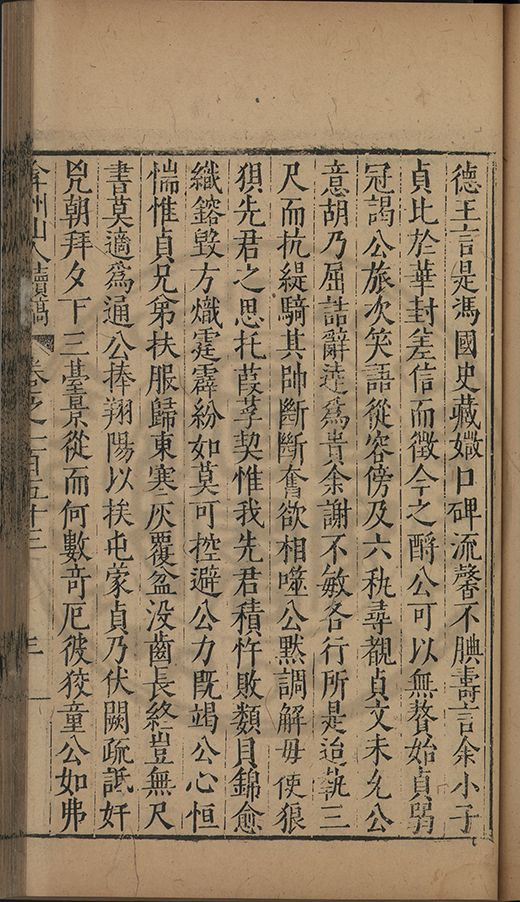 德王言是馮國史藏媺口碑流馨不腆壽言余小子
貞比於華封差信而徵今之酹公可以無贅始貞弱
冠謁公旅次笑語從容傍及六秇尋覩貞文未允公
意胡乃屈詰辭達爲貴余謝不敏各行所是迨執三
尺而抗緹騎其帥斷斷奮欲相噬公黙調解毋使狼
狽先君之思托葭莩契惟我先君積忤敗類貝錦愈
織鎔毀方熾霆霹紛如莫可控避公力既竭公心恒
惴惟貞兄弟扶服歸東寒灰覆盆没齒長終豈無尺
書莫適爲通公捧翔陽以挨屯蒙貞乃伏闕疏詆奸
兇朝拜夕下三臺景從而何數竒厄彼狡童公如弗
弇州山人續稿 卷之一百五十三 三